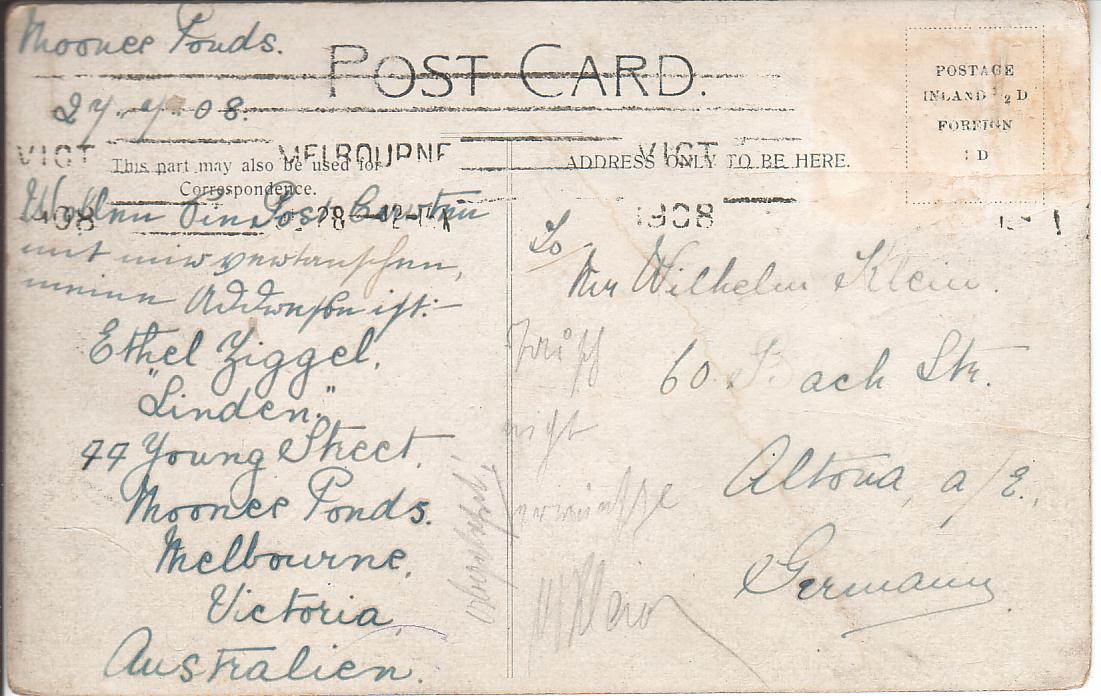 Moonee Ponds.
POST CARD.
27. 4. 08.
POSTAGE
INLAND ½ D
FOREIGN
1 D
VICT MELBOURNE VICT
This part may also be used for
Correspondence.
ADDRESS ONLY TO BE HERE.
1908
Wollen Sie Post Carten
mit mir vertauschen,
meine Addresse ist:-
Ethel Ziggel.
"Linden."
44 Young Street.
Moonee Ponds.
Melbourne.
Victoria
Australien.
To
Mr Wilhelm Klein.
60 Bach Str.
Altona, a/E.,
Germany
Tausch
nicht
erwünscht
WKlein